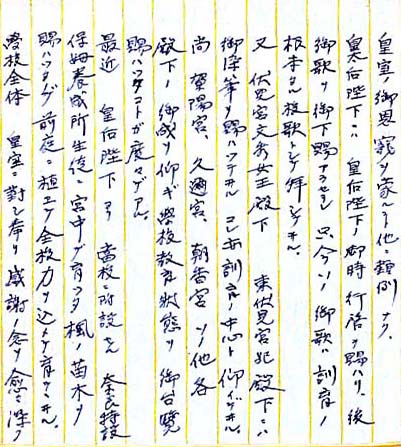 皇室ノ御恩寵ヲ蒙ルコト他ニ類例ナク、
皇太后陛下ニハ 皇后陛下ノ御時行啓ヲ賜ハリ、後
御歌ヲ御下賜アラセラレ 只今ソノ御歌ハ訓育ノ
根本タル校歌トシテ拝シテヰル。
又 伏見宮文秀女王殿下 東伏見宮妃殿下ニハ
御染筆ヲ賜ハツテヰル コレ亦訓育ノ中心ト仰イデヰル。
尚 賀陽宮、久邇宮 朝香宮 ソノ他各
殿下ノ御成ヲ仰ギ学校教育状態ヲ御台覧
賜ハツタコトガ度々デアル。
最近 皇后陛下ヨリ 当校ニ附設セル 奈良特設
保姆養成所生徒ニ宮中デ育ツタ楓ノ苗木ヲ
賜ハツタノデ前庭ニ植エテ全校力ヲ込メテ育テテヰル。
学校全体 皇室ニ対シ奉リ感謝ノ念ヲ愈々深ク